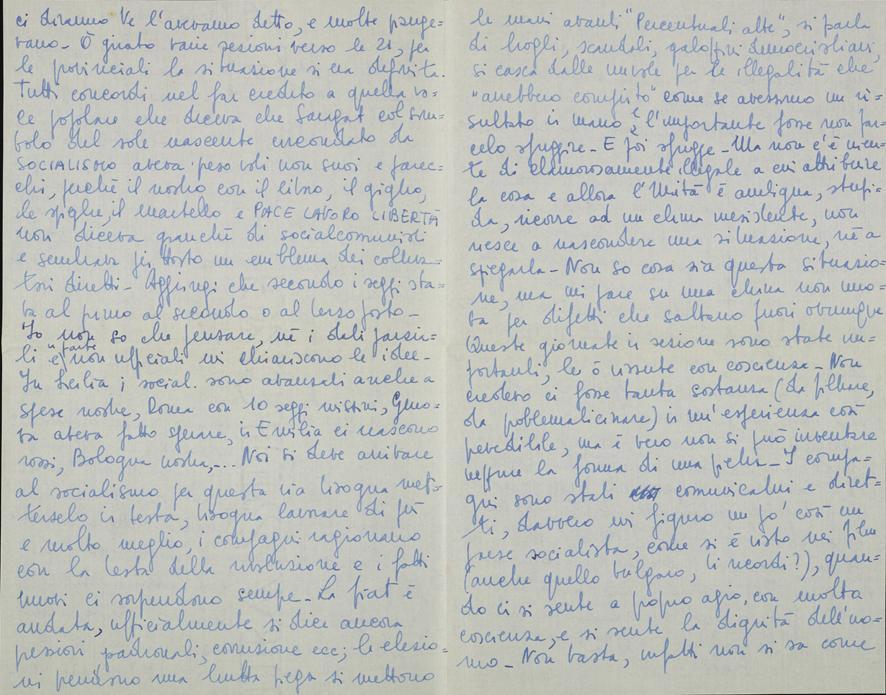 ci diranno Ve l'avevamo detto, e molte piange=
vano - Ò girato varie sezioni verso le 21, per
le provinciali la situazione si era definita.
Tutti concordi nel far credito a quella vo=
ce popolare che diceva che Saragat col sim=
bolo del sole nascente circondato da
SOCIALISMO aveva preso voti non suoi e parec=
chi, perché il nostro con il libro, il giglio,
le spighe, il martello e PACE LAVORO LIBERTÀ
non diceva granché di socialcomunisti
e sembrava piuttosto un emblema dei coltiva=
tori diretti - Aggiungi che secondo i seggi sta=
va al primo al secondo o al terzo posto -
Io non so che pensare, né i dati parzia=
li e non ufficiali mi chiariscono le idee -
In Sicilia i social. sono avanzati anche a
spese nostre, Roma con 10 seggi missini, Geno=
va aveva fatto sperare, in Emilia ci nascono
rossi, Bologna nostra,... Noi si deve arrivare
al socialismo per questa via bisogna met=
terselo in testa, bisogna lavorare di più
e molto meglio, i compagni ragionano
con la testa della rivoluzione e i fatti
nuovi ci sorprendono sempre - La fiat è
andata, ufficialmente si dice ancora
pressioni padronali, corruzione ecc; le elezio=
ni prendono una brutta piega si mettono
le mani avanti "Percentuali alte", si parla
di brogli, scandali, galoppini democristiani,
si casca dalle nuvole per le illegalità che
"avrebbero compiuto" come se avessimo un ri=
sultato in mano e l'importante fosse non far=
celo sfuggire - E poi sfugge - Ma non c'è nien=
te di clamorosamente illegale a cui attribuire
la cosa e allora l'Unità è ambigua, stupi=
da, ricorre ad un clima inesistente, non
riesce a nascondere una situazione, né a
spiegarla - Non so cosa sia questa situazio=
ne, ma mi pare su una china non nuo=
va per difetti che saltano fuori ovunque
Queste giornate in sezione sono state im=
portanti, le ò vissute con coscienza - Non
credevo ci fosse tanta sostanza (da filmare,
da problematicizzare) in un'esperienza così
prevedibile, ma è vero non si può inventare
neppure la forma di una pietra - I compa=
gni sono stati comunicativi e diret=
ti, davvero mi figuro un po' così un
paese socialista, come si è visto nei film
(anche quello bulgaro, ti ricordi?), quan=
do ci si sente a proprio agio, con molta
coscienza, e si sente la dignità dell'uo=
mo - Non basta, infatti non si sa come